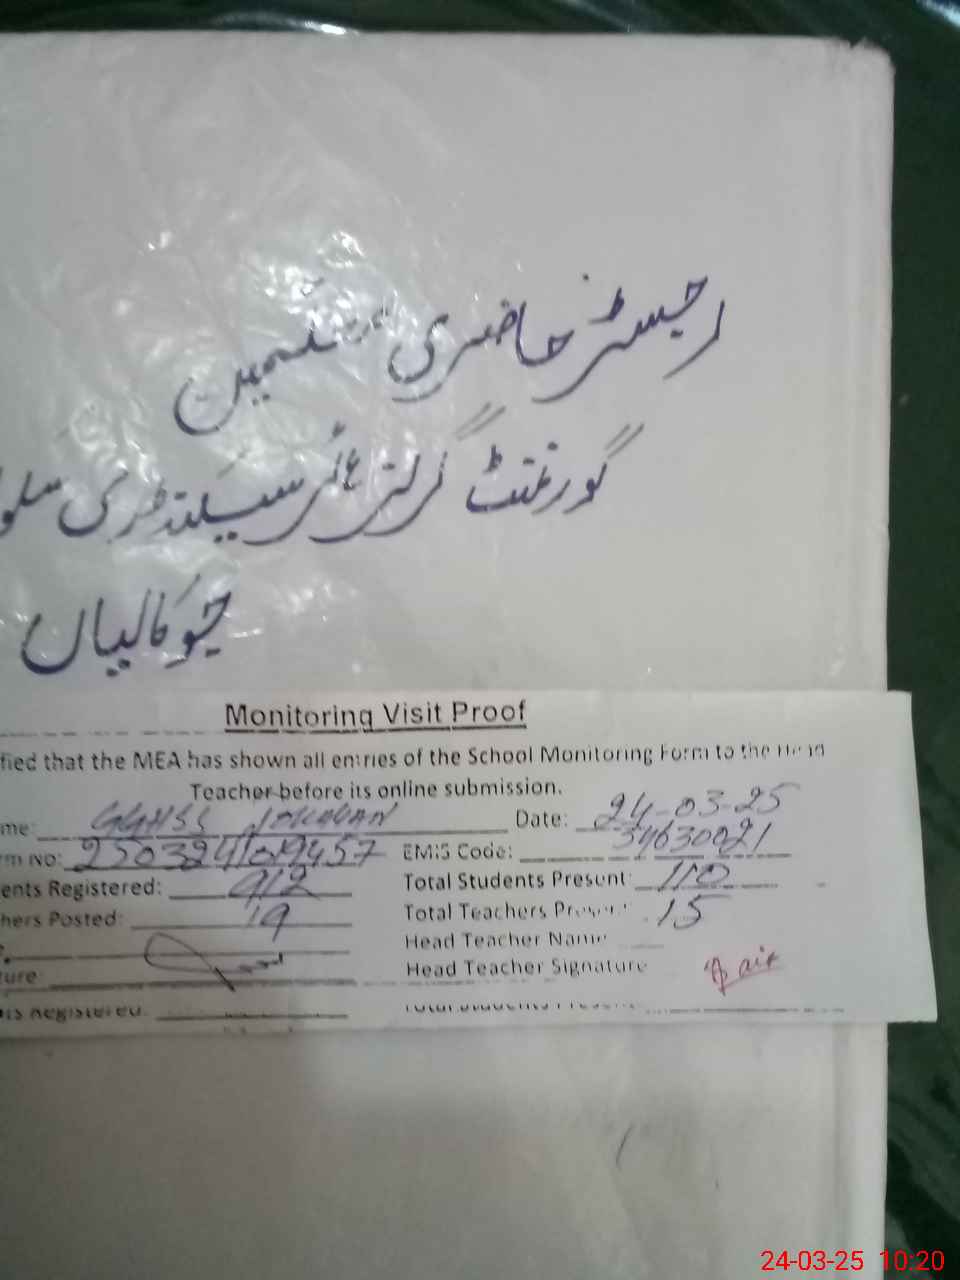 رجسٹر حاضری معلمین
گورنمنٹ گرلز ہائر سیکنڈری سکو
جوکالیاں
Monitoring Visit Proof
fied that the MEA has shown all entries of the School Monitoring Form to the Head
Teacher before its online submission.
me: GGHSS JOKALIAN Date: 24-03-25
rm No: 25032410 EMIS Code: 34630021
ents Registered: 912 Total Students Present: 110
hers Posted: 19 Total Teachers Present: 15
Head Teacher Name
ure: Head Teacher Signature
ts Registered: Total Students Present
24-03-25 10:20